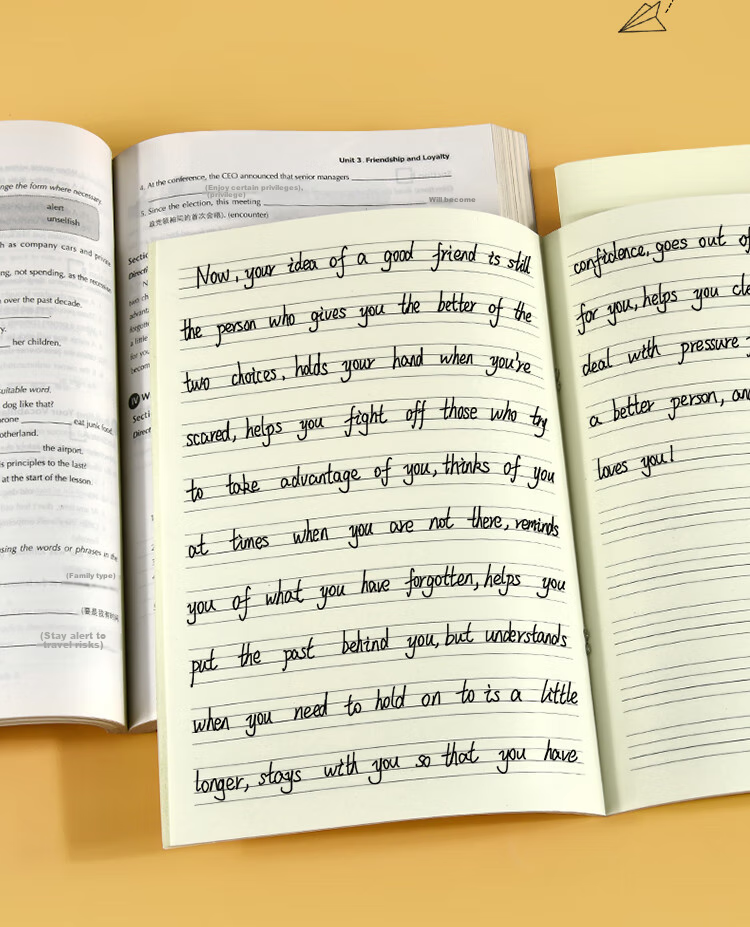 nge the form where necessary.
alert
unselfish
h as company cars and private
ng, not spending, as the recession
over the past decade.
y.
her children.
uitable word.
dog like that?
rone ________ eat junk food.
otherland.
the airport.
s principles to the last?
at the start of the lesson.
sing the words or phrases in the
(Family type)
(Stay alert to
travel risks)
Unit 3 Friendship and Loyalty
4. At the conference, the CEO announced that senior managers
(Enjoy certain privileges).
(privilege)
5. Since the election, this meeting
Will become
(encounter)
Sectio
Directi
N
two ch
advant
forgott
a little
for you
becom
IV W
Secti
Direct
Now, your idea of a good friend is still
the person who gives you the better of the
two choices, holds your hand when you're
scared, helps you fight off those who try
to take advantage of you, thinks of you
at times when you are not there, reminds
you of what you have forgotten, helps you
put the past behind you, but understands
when you need to hold on to is a little
longer, stays with you so that you have
confidence, goes out of
for you, helps you cle
deal with pressure
a better person, and
loves you!